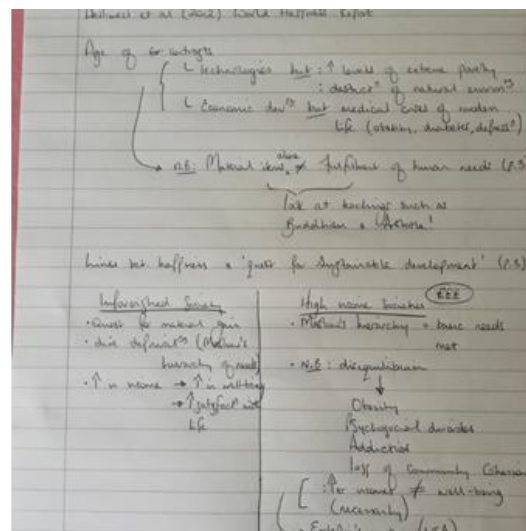 et al (2012) World Happiness Report
Age of contrasts
↳ technologies but : ↑ levels of extreme poverty
: destruct° of natural
↳ Economic dev but medical crises of modern
life (obesity, diabetes, depress°)
→ N.B: Material alone ≠ fulfilment of human needs (p.3)
look at teachings such as
Buddhism +
Links bet happiness + 'quest for Sustainable development' (p.3)
Society
• Quest for material gain
• dire (Maslow's
hierarchy of needs)
• ↑ in income → ↑ in well-being
→ ↑ satisfact° with
life
High income Societies £££
• Maslow's hierarchy = basic needs
met
• N.B : disequilibrium
↓
Obesity
Psychosocial disorders
Addiction
loss of Community Cohesion
: ↑ income ≠ well-being
(necessarily)